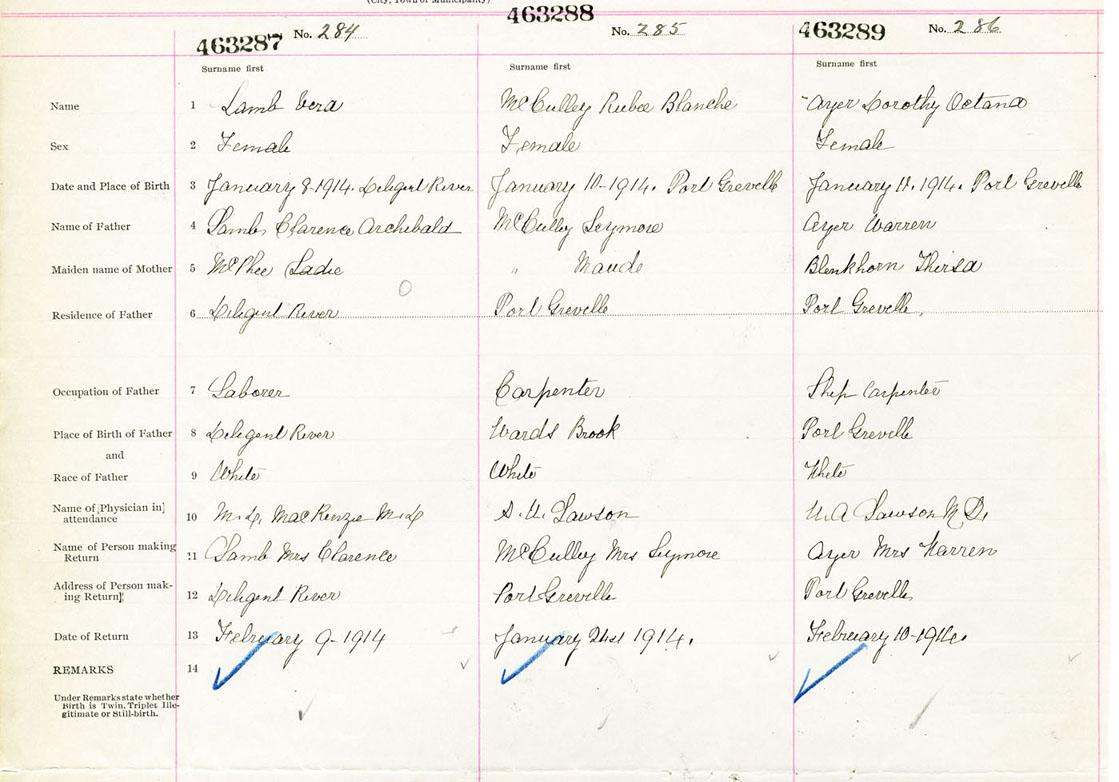 (City, Town or Municipality)
463287 No. 284 463288 No. 285 463289 No. 286
Surname first Surname first Surname first
Name 1 Lamb Vera McCulley Rubee Blanche Ayer Dorothy Octana
Sex 2 Female Female Female
Date and Place of Birth 3 January 8-1914. Diligent River January 10-1914. Port Greville January 11. 1914. Port Greville
Name of Father 4 Lamb, Clarence Archibald McCulley Seymore Ayer Warren
Maiden name of Mother 5 McPhee Sadie " Maude Blenkhorn Thirsa
Residence of Father 6 Diligent River Port Greville Port Greville.
Occupation of Father 7 Laborer Carpenter Ship Carpenter
Place of Birth of Father 8 Diligent River Wards Brook Port Greville
and
Race of Father 9 White White White
Name of [Physician in]
attendance 10 M.D. MacKenzie M.D Lawson Lawson M.D.
Name of Person making
Return 11 Lamb Mrs Clarence McCulley Mrs Seymore Ayer Mrs Warren
Address of Person mak-
ing Return 12 Diligent River Port Greville Port Greville
Date of Return 13 February 9-1914 January 21st 1914. February 10-1914.
REMARKS 14
Under Remarks state whether
Birth is Twin, Triplet Ille-
gitimate or Still-birth.